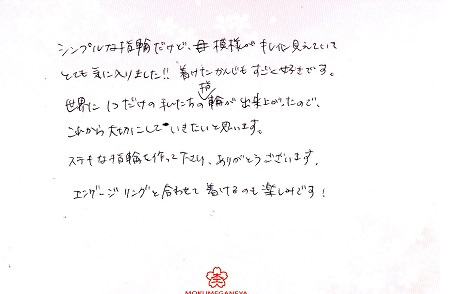 シンプルな指輪だけど、母模様がキレイに見えていて
とても気に入りました!! 着けたかんじもすごく好きです。
世界に1つだけの私たちの指輪が出来上がったので、
これから大切にしていきたいと思います。
ステキな指輪を作って下さり、ありがとうございます。
エンゲージリングと合わせて着けるのも楽しみです!
MOKUMEGANEYA